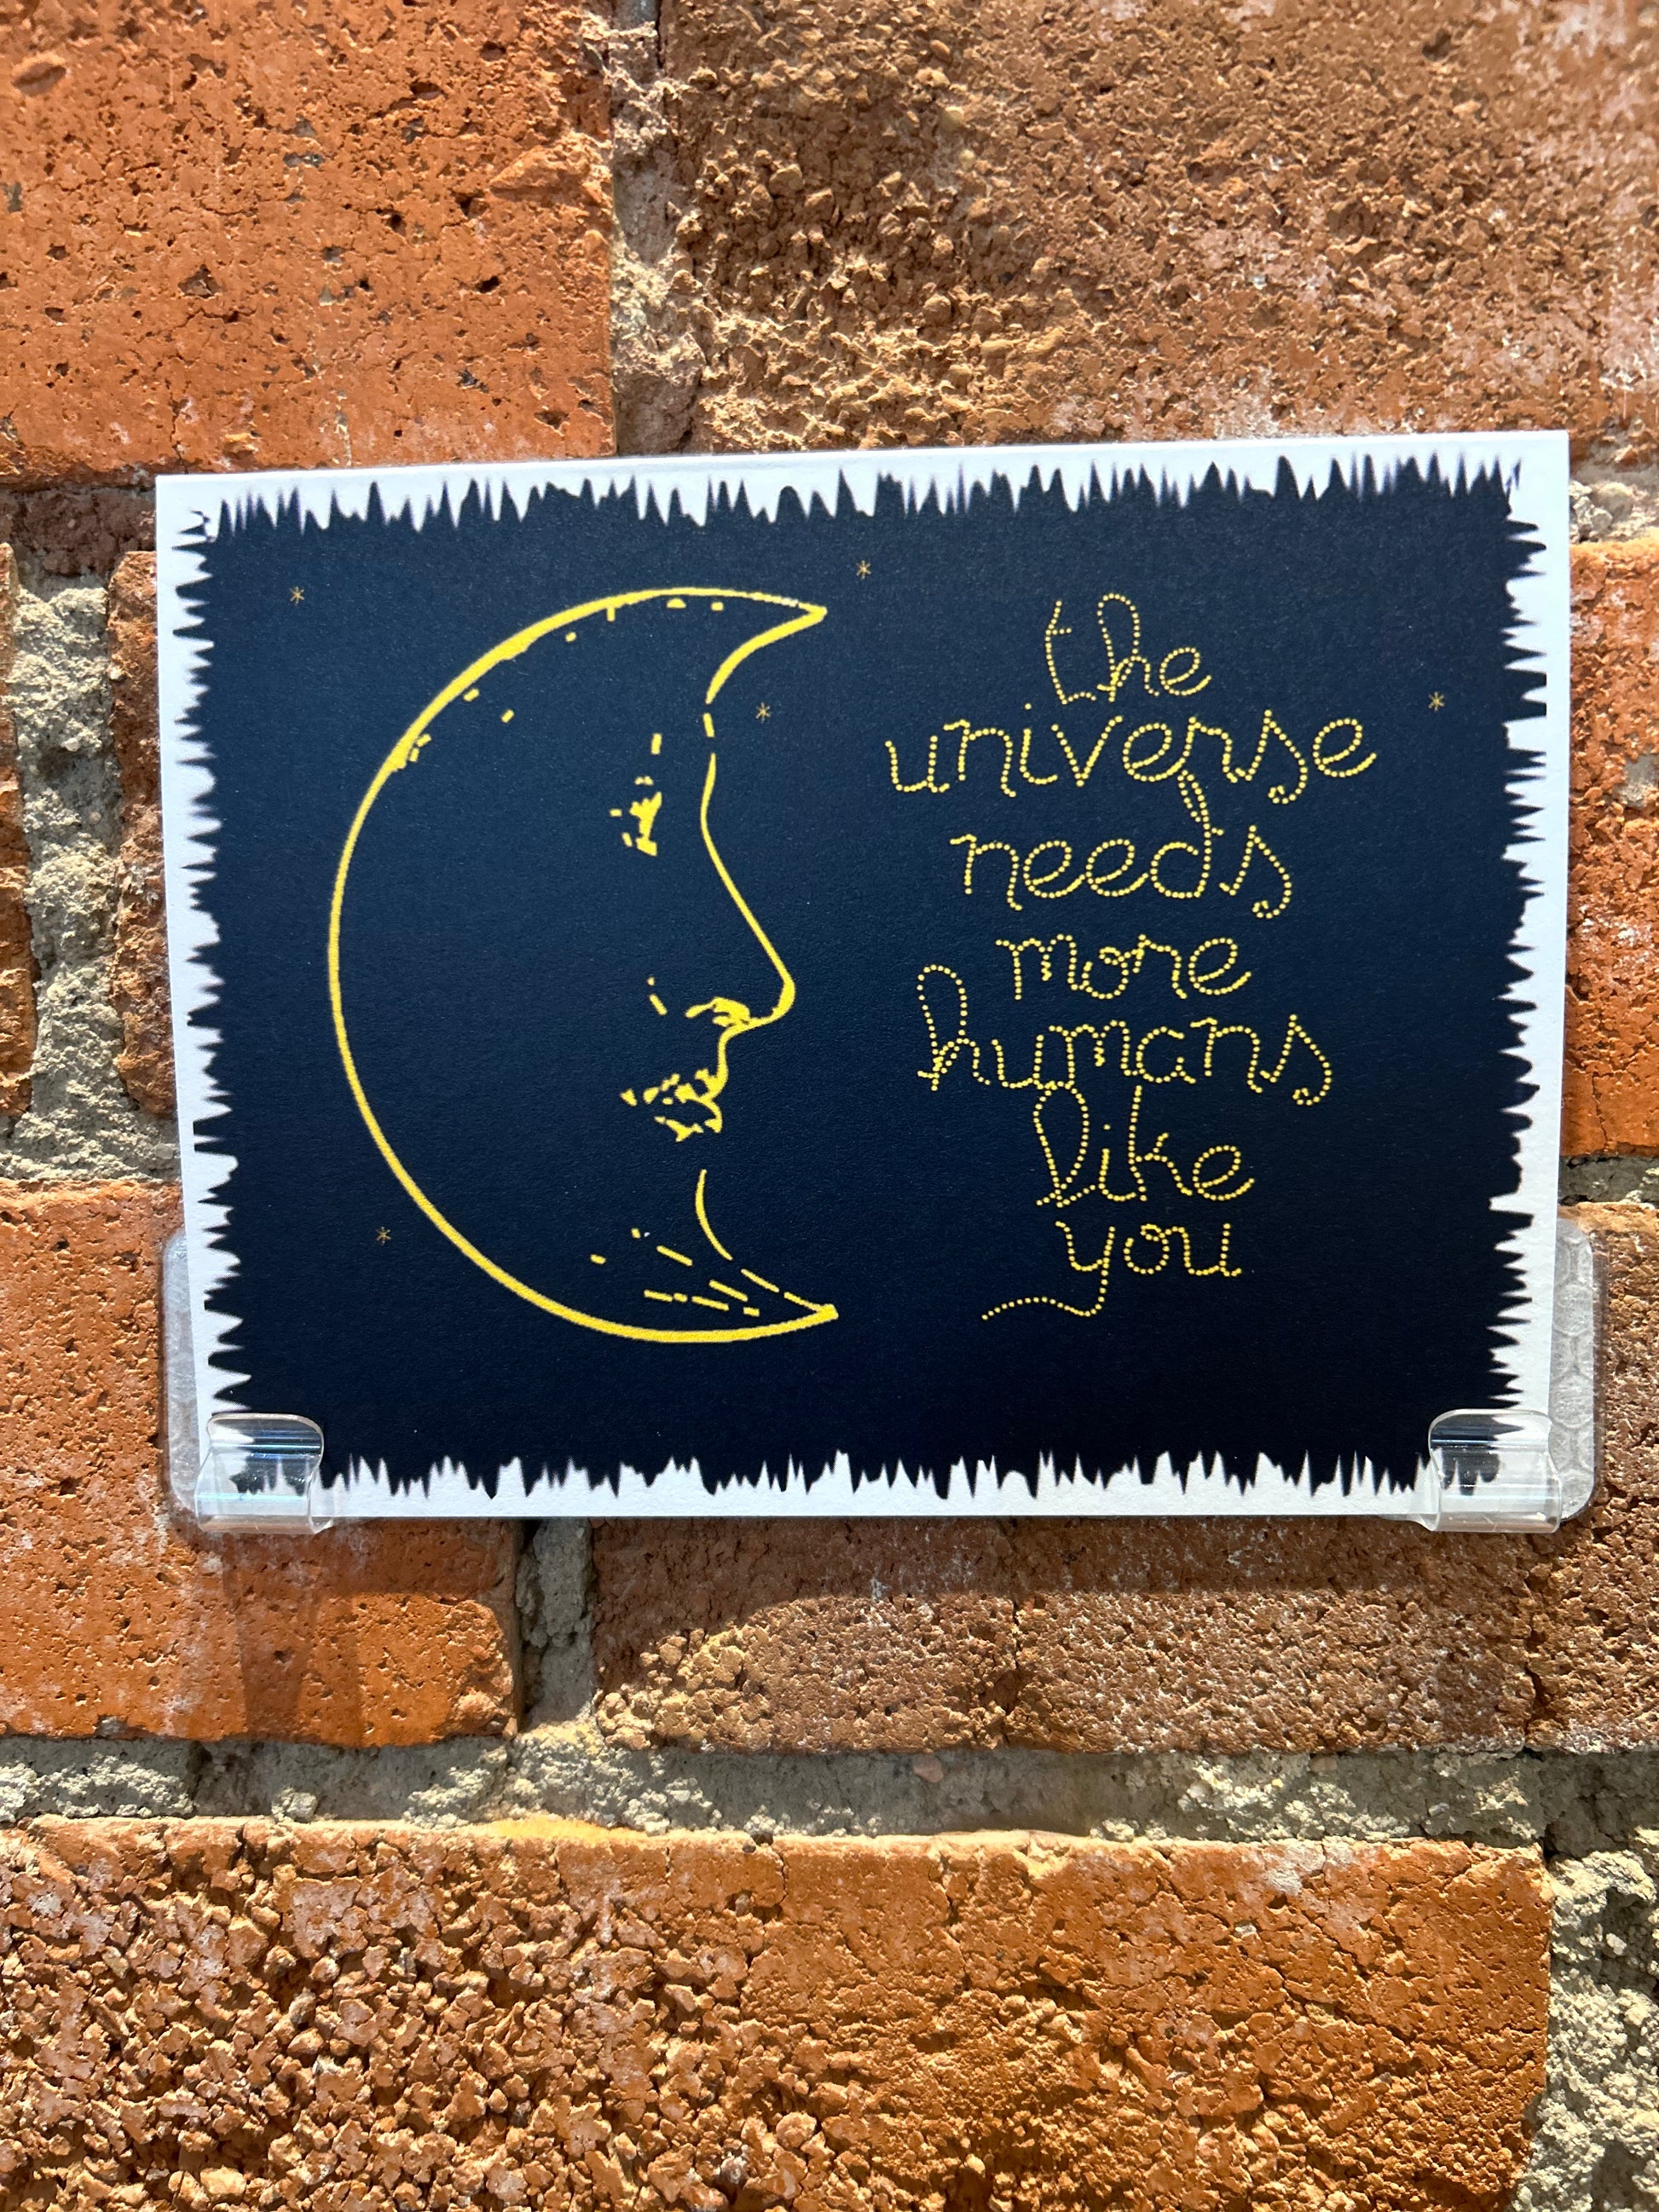 the
universe
needs
more
humans
like
you